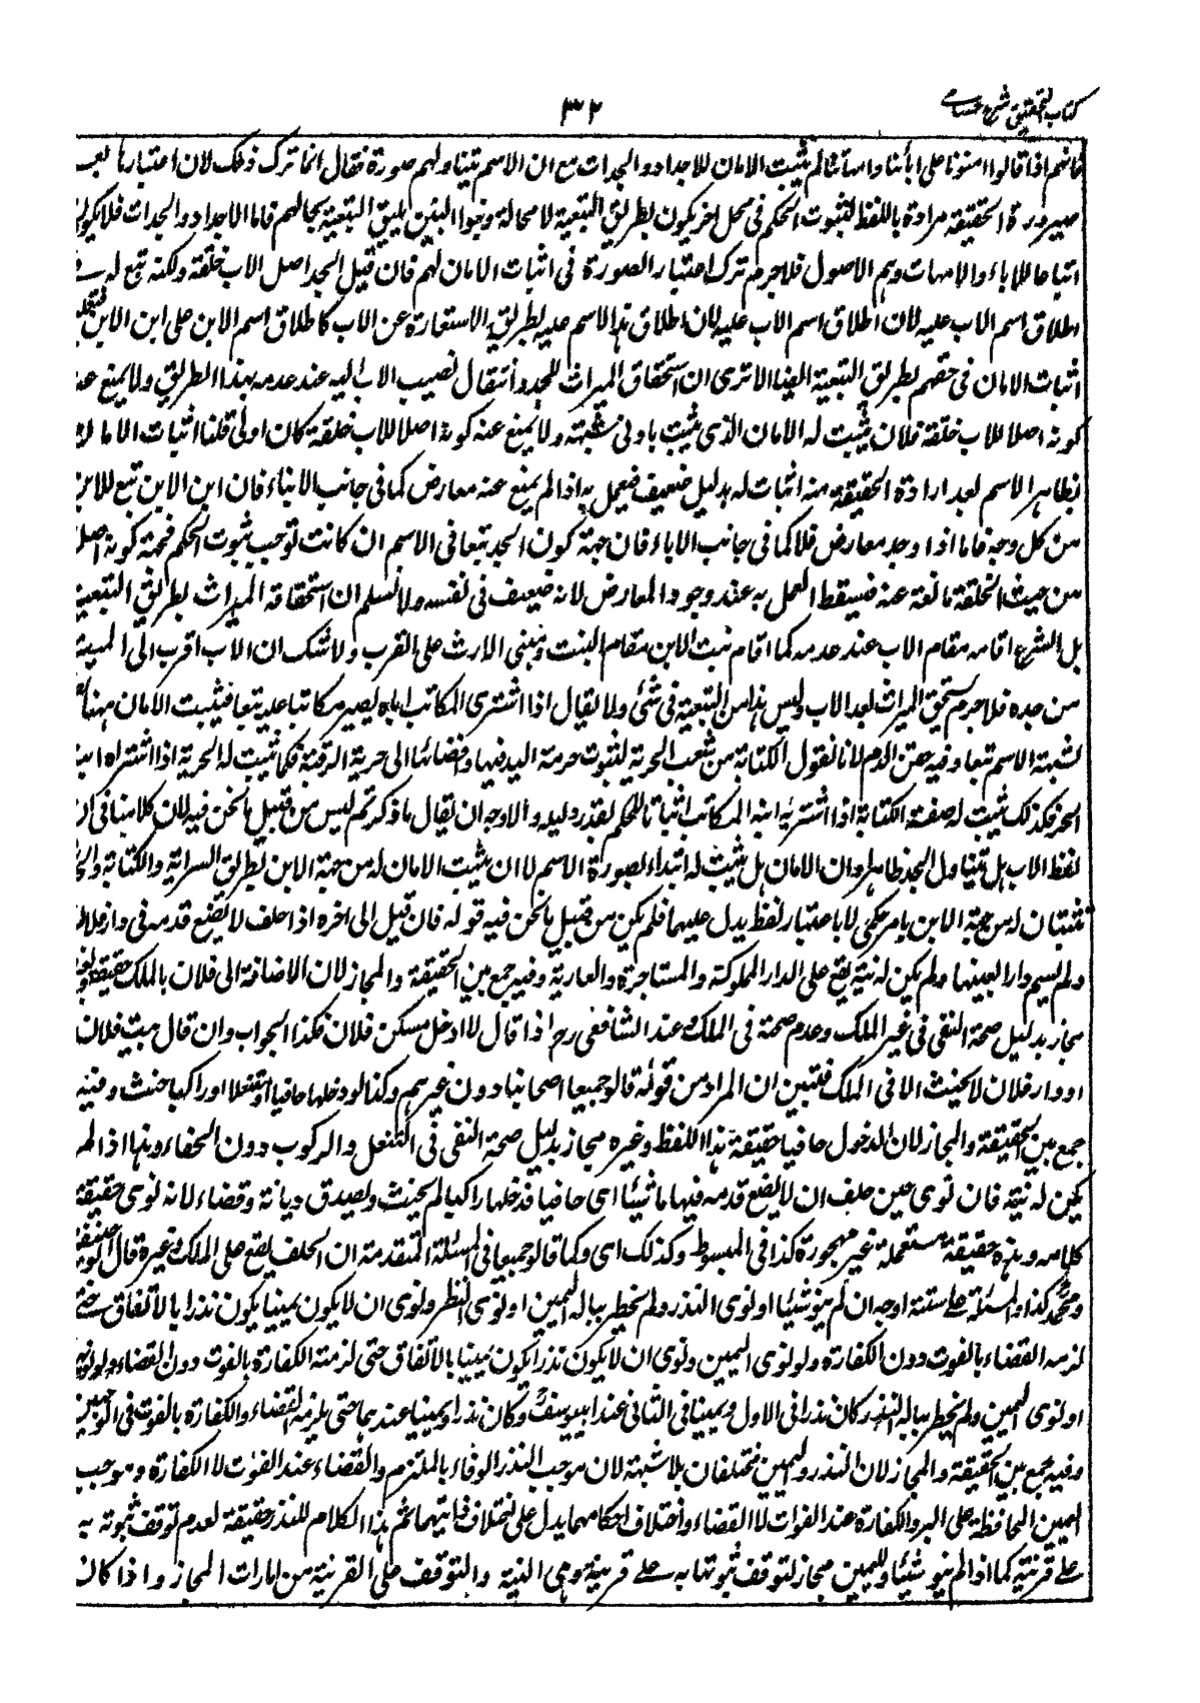 كتاب التحقيق شرح حسامى
٣٢
فانهم اذا قالوا امنونا على ابائنا وامهاتنا لم يثبت الامان للاجداد والجدات مع ان الاسم يتناولهم صورة فقال انما ترك ذلك لان اعتبارها لعب
صيرورة الحقيقة مرادة باللفظ لثبوت الحكم فى محل اخر يكون بطريق التبعية لا محالة وبنوا البنين يليق التبعية بحالهم فاما الاجداد والجدات فلا يكونوا
اتباعا للاباء والامهات وهم الاصول فلا جرم ترك اعتبار الصورة فى اثبات الامان لهم فان قيل الجد اصل الاب خلقة ولكنه تبع له فى
اطلاق اسم الاب عليه لان اطلاق اسم الاب عليه لان اطلاق هذا الاسم عليه بطريق الاستعارة عن الاب كاطلاق اسم الابن على ابن الابن
اثبات الامان فى حقهم بطريق التبعية ايضا الا ترى ان استحقاق الميراث للجد وانتقال نصيب الاب اليه عند عدمه بهذا الطريق ولا يمنع عنه
كونه اصلا للاب خلقة فلان يثبت له الامان الذى يثبت بادنى شبهة ولا يمنع عنه كونه اصلا للاب خلقة كان اولى قلنا اثبات الامان
بظاهر الاسم بعد ارادة الحقيقة منه اثبات له بدليل ضعيف فيعمل به اذا لم يمنع عنه معارض كما فى جانب الابناء فان ابن الابن تبع للابن
من كل وجه فاما اذا وجد معارض فلا كما فى جانب الاباء فان جهة كون الجد تبعا فى الاسم ان كانت توجب ثبوت الحكم فجهة كونه اصلا
من حيث الخلقة مانعة عنه فيسقط العمل به عند وجود المعارض لانه ضعيف فى نفسه ولا نسلم ان استحقاقه الميراث بطريق التبعية
بل الشرع اقامه مقام الاب عند عدمه كما اقام بنت الابن مقام البنت ومبنى الارث على القرب ولا شك ان الاب اقرب الى الميت
من جده فلا جرم يستحق الميراث بعد الاب وليس هذا من التبعية فى شئ ولا يقال اذا اشترى المكاتب اباه يصير مكاتبا عليه تبعا فيثبت الامان ههنا
لشبهة الاسم تبعا وفيه حقن الدم لانا نقول الكتابة من شعب الحرية لثبوت حرمة اليد فيها وافضائها الى حرية الرقبة فكما تثبت له الحرية اذا اشتراه ابنه
الحر فكذلك تثبت له صفة الكتابة اذا اشتريه ابنه المكاتب اثباتا للحكم بقدر دليله والاوجه ان يقال ما ذكرتم ليس من قبيل ما نحن فيه لان كلامنا فى ان
لفظ الاب هل يتناول الجد ظاهرا وان الامان هل يثبت له ابتداء بصورة الاسم لا ان يثبت الامان له من جهة الابن بطريق السراية والكتابة والحرية
تثبتان له من جهة الابن بامر حكمى لا باعتبار لفظ يدل عليهما فلم يكن من قبيل ما نحن فيه قوله فان قيل الى اخره اذا حلف لا يضع قدمه فى دار فلان
ولم يسم دارا بعينها ولم يكن له نية يقع على الدار المملوكة والمستاجرة والعارية وفيه جمع بين الحقيقة والمجاز لان الاضافة الى فلان بالملك حقيقة
مجاز بدليل صحة النفى فى غير الملك وعدم صحته فى الملك وعند الشافعى رح اذا قال لا ادخل مسكن فلان فكذا الجواب وان قال بيت فلان
او دار فلان لا يحنث الا فى الملك فتبين ان المراد من قوله قالوا جميعا اصحابنا دون غيرهم وكذا لو دخلها حافيا او متنعلا او راكبا حنث وفيه
جمع بين الحقيقة والمجاز لان الدخول حافيا حقيقة هذا اللفظ وغيره مجاز بدليل صحة النفى فى التنعل والركوب دون الحفاء وهذا اذا لم
يكن له نية فان نوى حين حلف ان لا يضع قدمه فيها ماشيا اى حافيا فدخلها راكبا لم يحنث ويصدق ديانة وقضاء لانه نوى حقيقة
كلامه وهذه حقيقة مستعملة غير مهجورة كذا فى المبسوط وكذلك اى وكما قالوا جميعا فى المسئلة المتقدمة ان الحلف يقع على الملك وغيره قال ابو حنيفة
ومحمد كذا والمسئلة على ستة اوجه ان لم ينو شيئا او نوى النذر ولم يخطر بباله اليمين او نوى النظر ونوى ان لا يكون يمينا يكون نذرا بالاتفاق حتى
لزمه القضاء بالفوت دون الكفارة ولو نوى اليمين ونوى ان لا يكون نذرا يكون يمينا بالاتفاق حتى لزمته الكفارة بالفوت دون القضاء ولو نواهما
او نوى اليمين ولم يخطر بباله النذر كان نذرا فى الاول ويمينا فى الثانى عند ابيوسف وكان نذرا ويمينا عندهما حتى يلزمه القضاء والكفارة بالفوت فى الوجهين
وفيه جمع بين الحقيقة والمجاز لان النذر واليمين مختلفان بلا شبهة لان موجب النذر الوفاء بالملتزم والقضاء عند الفوت لا الكفارة وموجب
اليمين المحافظة على البر والكفارة عند الفوات لا القضاء واختلاف احكامهما يدل على اختلاف ذاتيهما ثم هذا الكلام للنذر حقيقة لعدم توقف ثبوته به
على قرينة كما اذا لم ينو شيئا ولليمين مجاز لتوقف ثبوتها به على قرينة وهى النية والتوقف على القرينة من امارات المجاز واذا كان